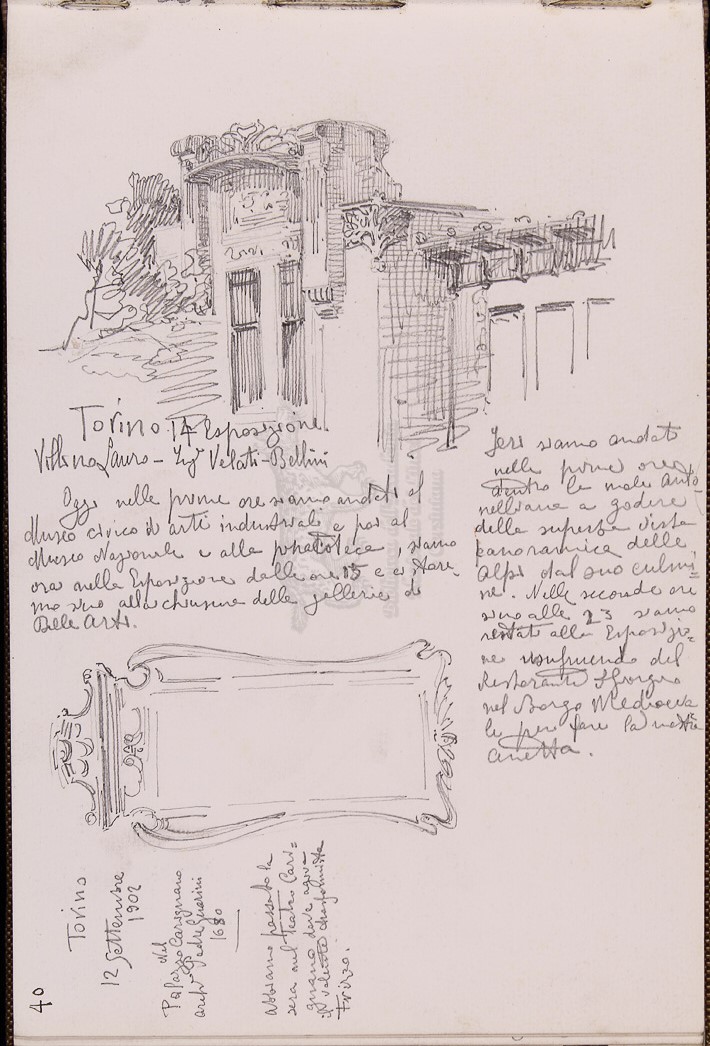 Torino 14 Esposizione.
Villino Lauro - Ingʳ Velati-Bellini
Oggi nelle prime ore siamo andati al
Museo civico di arti industriali e poi al
Museo Nazionale e alla pinacoteca, siamo
ora nella Esposizione dalle ore 15 e ci stare=
mo sino alla chiusura delle gallerie di
Belle Arti.
Jeri siamo andati
nelle prime ore
dentro la mole Anto
nelliana a godere
della superba vista
panoramica delle
Alpi dal suo culmi=
ne. Nelle seconde ore
sino alle 23 siamo
restati alla Esposizio=
ne usufruendo del
Restorante
nel Borgo Medioeva
le per fare la nostra
cenetta.
Torino
12 Settembre
1902
Nel
Palazzo Carignano
archᵗᵒ Padre Guarini
1680
Abbiamo passato la
sera nel teatro Cari=
gnano dove agiva
il valente trasformista
Frizzo.
40